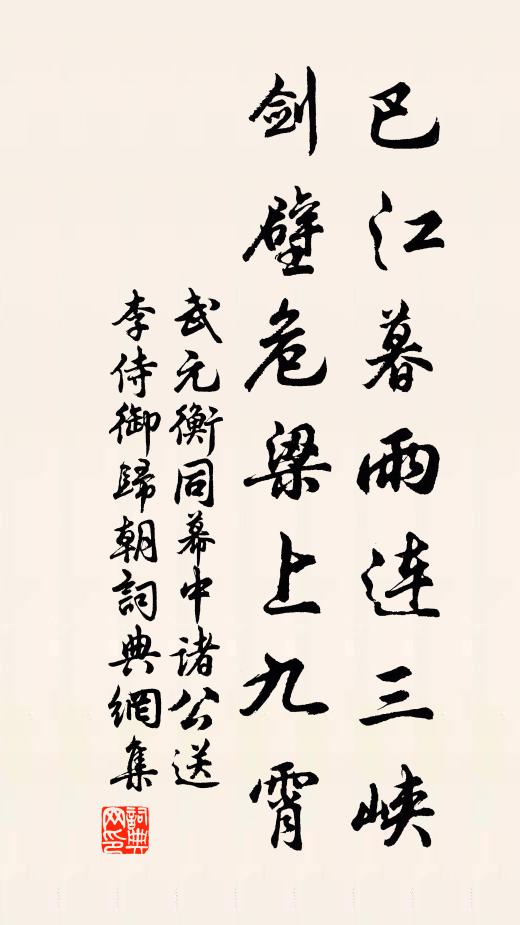 巴江暮雨连三峡
剑壁危梁上九霄
武元衡同幕中诸公送
李侍御歸朝詞典網集
詞典網印